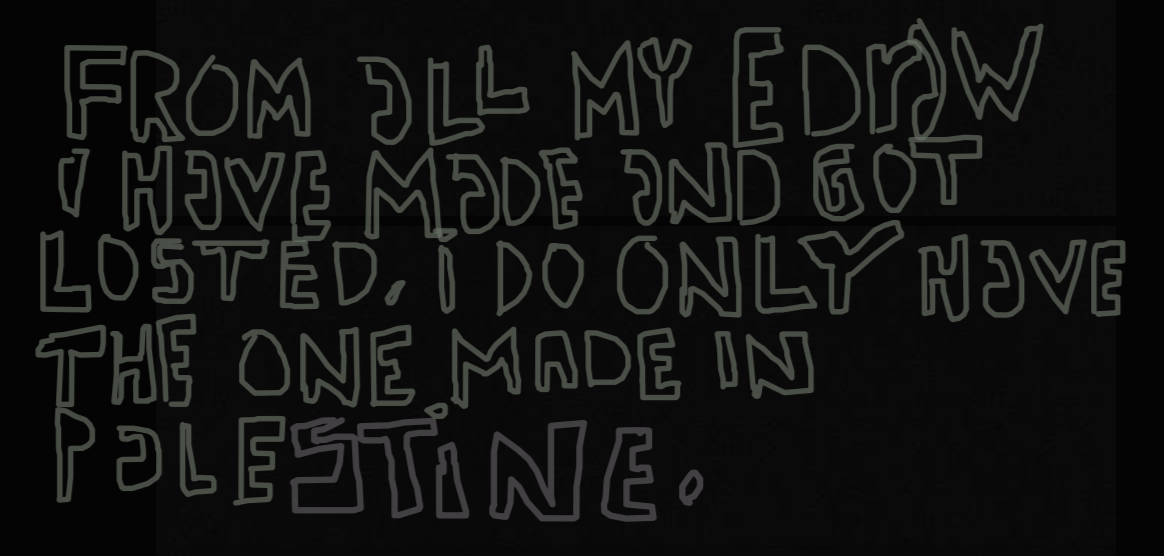 FROM ALL MY EDRAW
I HAVE MADE AND GOT
LOSTED. I DO ONLY HAVE
THE ONE MADE IN
PALESTINE.